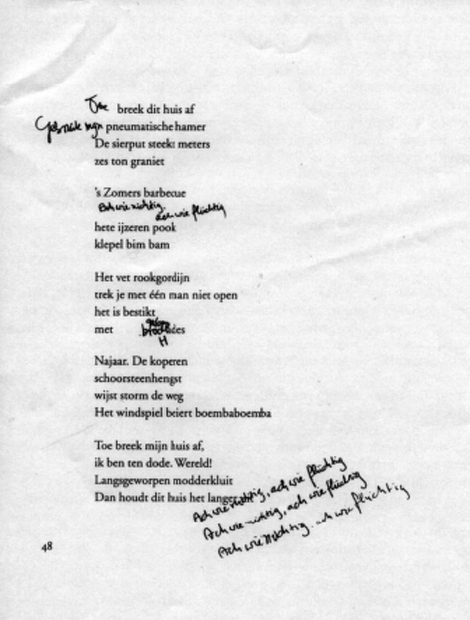 Toe breek dit huis af
Gebruik mijn pneumatische hamer
De sierput steekt meters
zes ton graniet
's Zomers barbecue
Ach wie nichtig,
ach wie flüchtig
hete ijzeren pook
klepel bim bam
Het vet rookgordijn
trek je met één man niet open
het is bestikt
met
Najaar. De koperen
schoorsteenhengst
wijst storm de weg
Het windspiel beiert boembaboemba
Toe breek mijn huis af,
ik ben ten dode. Wereld!
Langsgeworpen modderkluit
Dan houdt dit huis het langer
Ach wie nichtig, ach wie flüchtig
Ach wie nichtig, ach wie flüchtig
Ach wie nichtig, ach wie flüchtig
48